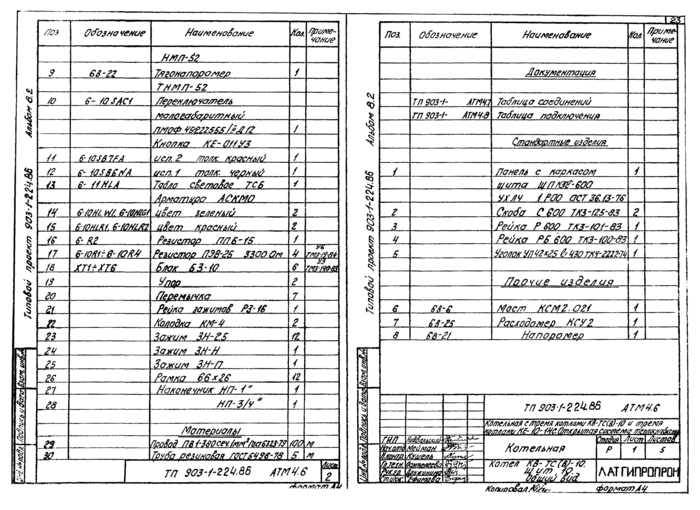 Поз. Обозначение Наименование Кол. Приме-чание
НМП-52
9 6В-22 Тягонапоромер 1
ТНМП-52
10 6-10SAC1 Переключатель
малогабаритный
1
Кнопка КЕ-011У3
11 6-10SB7FA исп. 2 толк. красный 1
12 6-10SB6NA исп. 1 толк. черный 1
13 6-11HLA Табло световое ТСБ 1
Арматура АСКМО
14 цвет зеленый 2
15 6-10HLR1, 6-10HLR2 цвет красный 2
16 6-R2 Резистор ПП6-15 1
17 6-10R1÷6-10R4 Резистор ПЭВ-25 3300 Ом 4
18 XT1÷XT6 Блок БЗ-10 6
19 Упор 2
20 Перемычка 7
21 Рейка зажимов РЗ-16 1
22 Колодка КМ-4 2
23 Зажим ЗН-2.5 12
24 Зажим ЗН-Н 1
25 Зажим ЗН-П 1
26 Рамка 66×26 12
27 Наконечник НП-1" 1
28 НП-3/4" 1
Материалы
29 Провод ПВ1-380 сеч. 1мм² ГОСТ 6323-79 100 м
30 Труба резиновая ГОСТ 5496-78 5 м
ТП 903-1-224.86 АТМ4.6 Лист 2
Формат А4
Типовой проект 903-1-224.86 Альбом 8.2
23
Поз. Обозначение Наименование Кол. Приме-чание
Документация
ТП 903-1- АТМ4.7 Таблица соединений
ТП 903-1- АТМ4.8 Таблица подключения
Стандартные изделия
1 Панель с каркасом 1
щита
УХЛ4 IP00 ОСТ 36.13-76
2 Скоба С 600 ТК3-125-83 2
3 Рейка Р 600 ТК3-101-83 1
4 Рейка РБ 600 ТК3-100-83 1
5 1
Прочие изделия
6 6В-6 Мост КСМ2.021 1
7 6В-25 Расходомер КСУ2 1
8 6В-21 Напоромер 1
ТП 903-1-224.86 АТМ4.6
Котельная с тремя котлами КВ-ТС(В)-10 и тремя
котлами КЕ-10-14С. Открытая система теплоснабж.
Котельная
Стадия Лист Листов
Р 1 5
Котел КВ-ТС(В)-10.
Щит 10.
Общий вид
ЛАТГИПРОПРОМ
Копировал
Формат А4
Типовой проект 903-1-224.86 Альбом 8.2